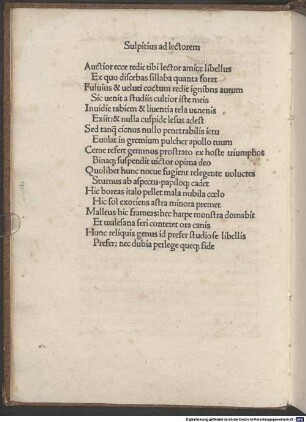 Sulpitius ad lectorem
Auctior ecce redit tibi lector amice libellus
Ex quo discebas sillaba quanta foret
Fuluius & ueluti coctum redit ignibus aurum
Sic uenit a studiis cultior iste meis
Inuidie rabiem & liuentia tela uenenis
Exiit: & nulla cuspide lesus adest
Sed tanq̄ cicnus nullo penetrabilis ictu
Euolat in gremium pulcher apollo tuum
Cerne refert geminos prostrato ex hoste triumphos
Binaq; suspendit uictor opima deo
Quolibet hunc nocue fugient relegente uolucres
Sturnus ab aspectu papiloq; cadet
Hic boreas italo pellet mala nubila coelo
Hic sol exotiens astra minora premet
Malleus hic frameas: hec harpe monstra domabit
Et walesana feri conteret ora canis
Hunc reliquis genus id prefer studiose libellis
Prefer: nec dubia perlege queq; fide